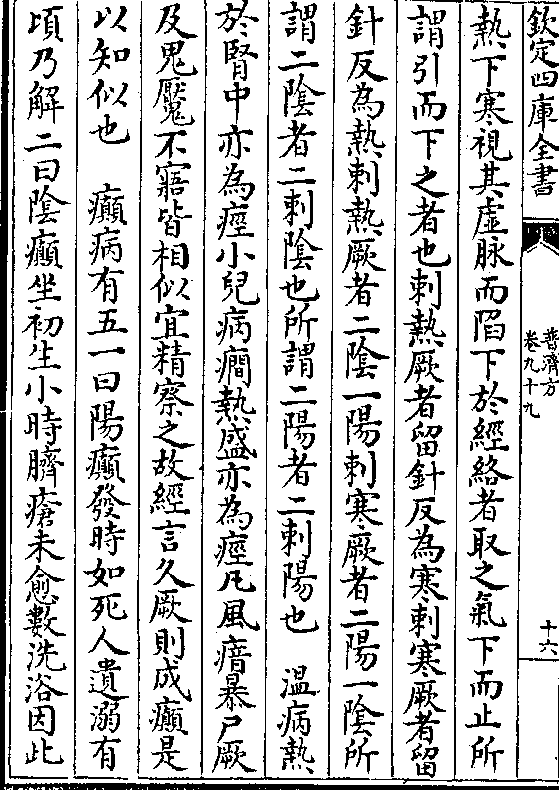 欽定四庫全書
普濟方
卷九十九
十六
熱下寒視其虛脉而䧟下於經絡者取之氣下而止所
謂引而下之者也刺熱厥者留針反為寒刺寒厥者留
針反為熱刺熱厥者二陰一陽刺寒厥者二陽一陰所
謂二陰者二刺陰也所謂二陽者二刺陽也　温病熱
於腎中亦為痙小兒病癎熱盛亦為痙凡風瘖暴尸厥
及鬼魘不寤皆相似宜精察之故經言久厥則成癲是
以知似也　癲病有五一曰陽癲發時如死人遺溺有
頃乃解二曰陰癲坐初生小時臍瘡未愈數洗浴因此